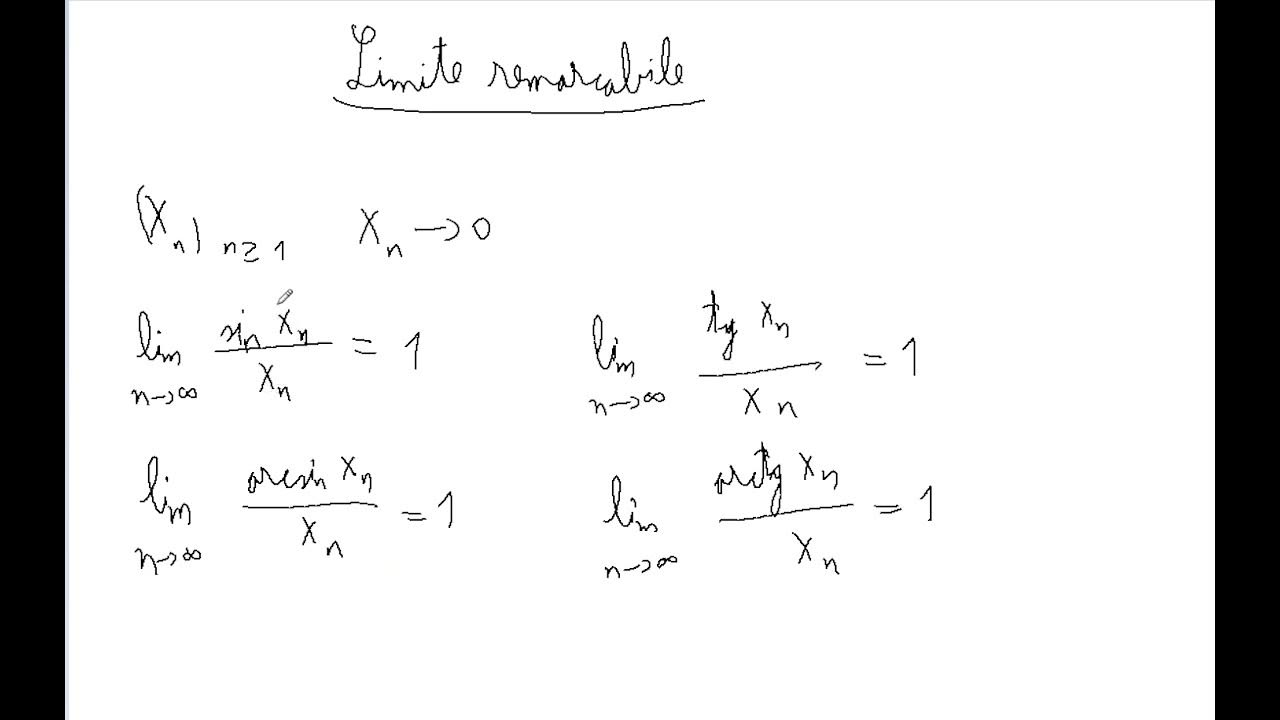 Limite remarcabile
(x_n)_{n≥1} x_n → 0
lim_{n→∞} sin x_n / x_n = 1 lim_{n→∞} tg x_n / x_n = 1
lim_{n→∞} arcsin x_n / x_n = 1 lim_{n→∞} arctg x_n / x_n = 1